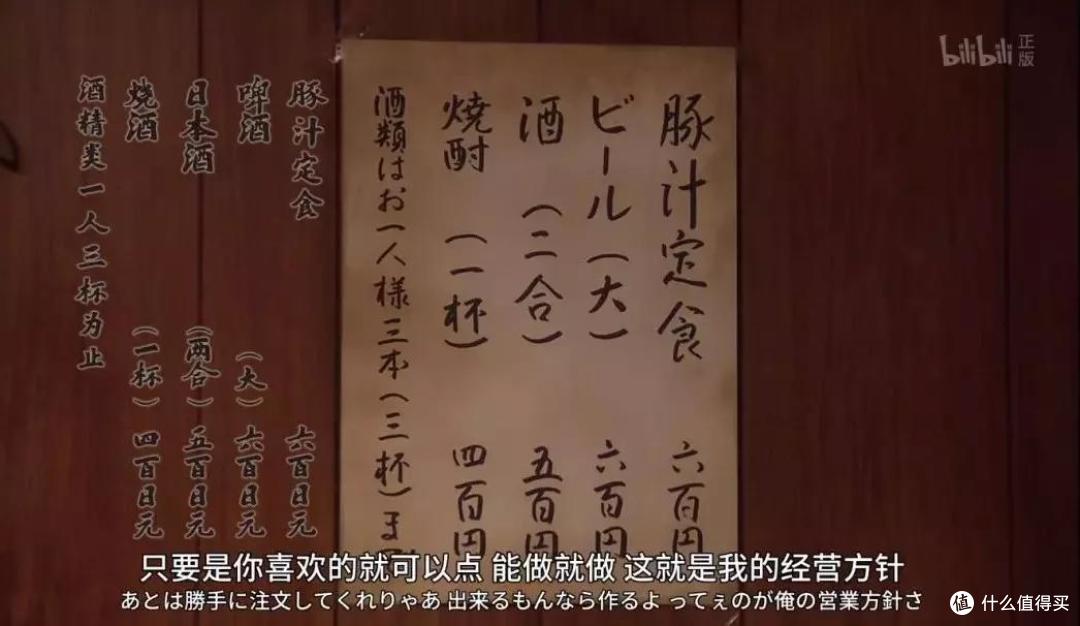 豚汁定食 六百円
ビール(大) 六百円
酒(二合) 五百円
焼酎(一杯) 四百円
酒類はお一人様三本(三杯)ま
豚汁定食 六百日元
啤酒(大) 六百日元
日本酒(两合) 五百日元
烧酒(一杯) 四百日元
酒精类一人三杯为止
bilibili 正版
只要是你喜欢的就可以点 能做就做 这就是我的经营方针
あとは勝手に注文してくれりゃあ 出来るもんなら作るよ ってぇのが俺の営業方針さ
值 什么值得买